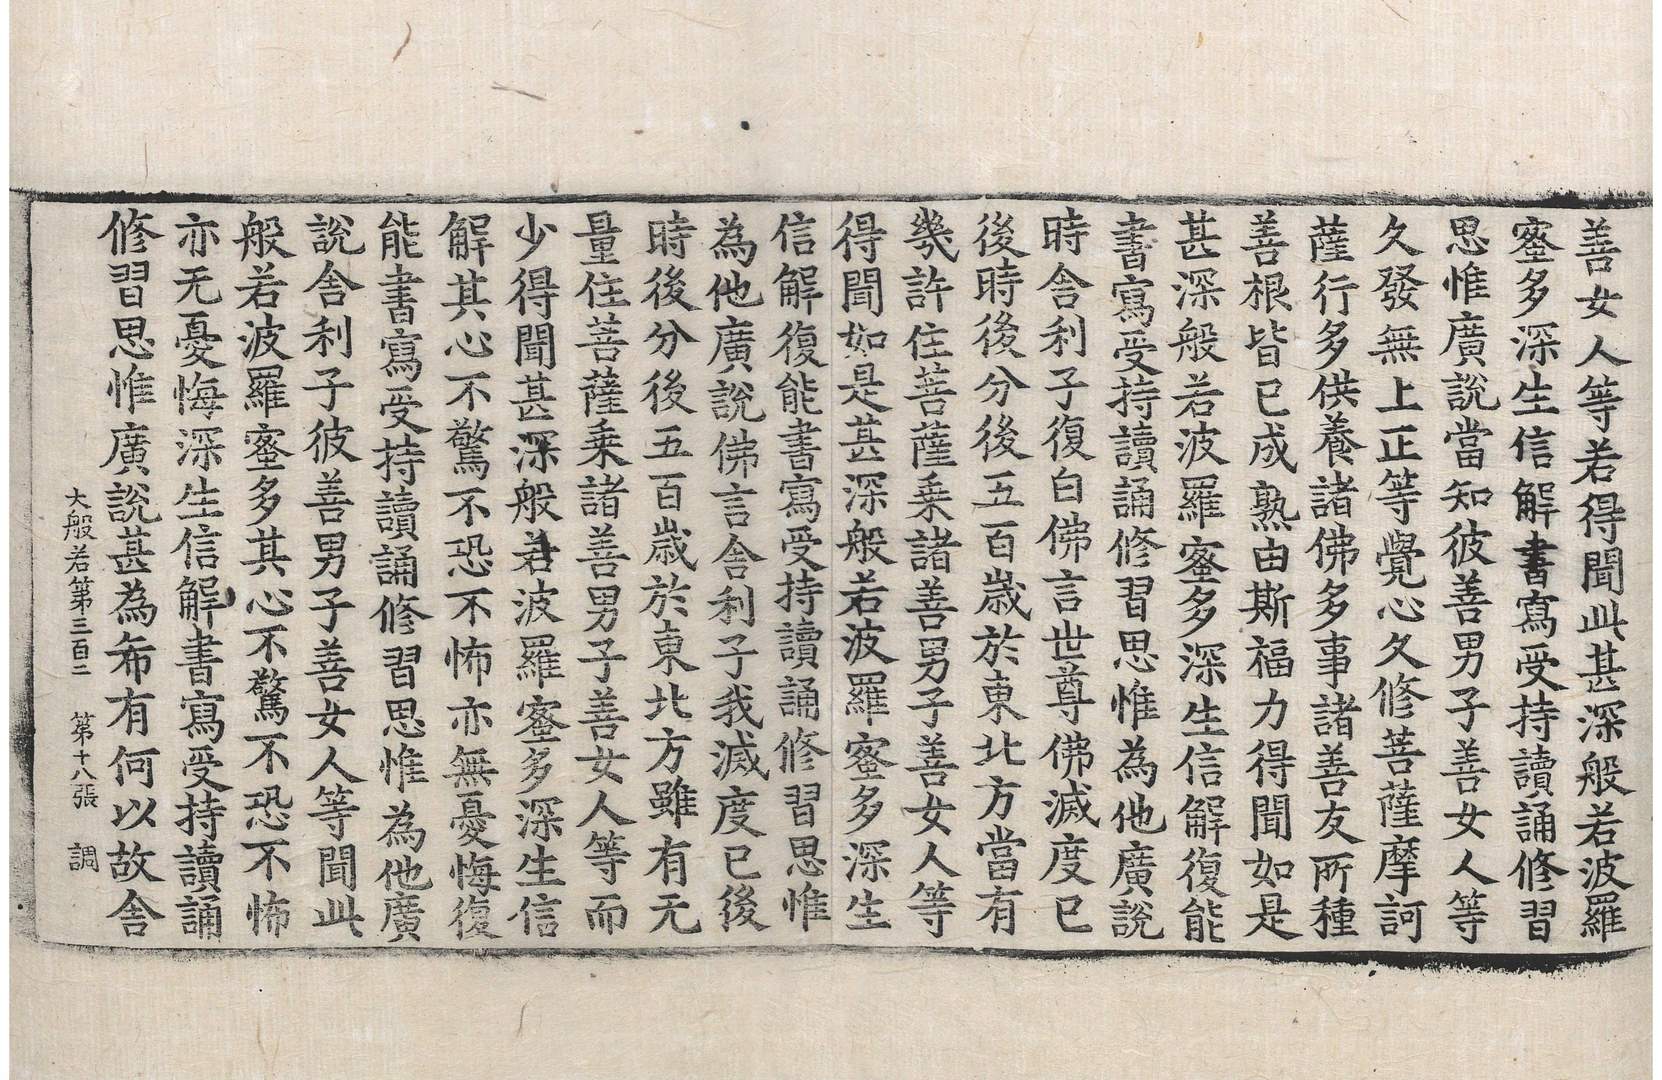 善女人等若得聞此甚深般若波羅
蜜多深生信解書寫受持讀誦修習
思惟廣說當知彼善男子善女人等
久發無上正等覺心久修菩薩摩訶
薩行多供養諸佛多事諸善友所種
善根皆已成熟由斯福力得聞如是
甚深般若波羅蜜多深生信解復能
書寫受持讀誦修習思惟為他廣說
時舍利子復白佛言世尊佛滅度已
後時後分後五百歲於東北方當有
幾許住菩薩乘諸善男子善女人等
得聞如是甚深般若波羅蜜多深生
信解復能書寫受持讀誦修習思惟
為他廣說佛言舍利子我滅度已後
時後分後五百歲於東北方雖有无
量住菩薩乘諸善男子善女人等而
少得聞甚深般若波羅蜜多深生信
解其心不驚不恐不怖亦無憂悔復
能書寫受持讀誦修習思惟為他廣
說舍利子彼善男子善女人等聞此
般若波羅蜜多其心不驚不恐不怖
亦无憂悔深生信解書寫受持讀誦
修習思惟廣說甚為希有何以故舍
大般若第三百二 第十八張 調